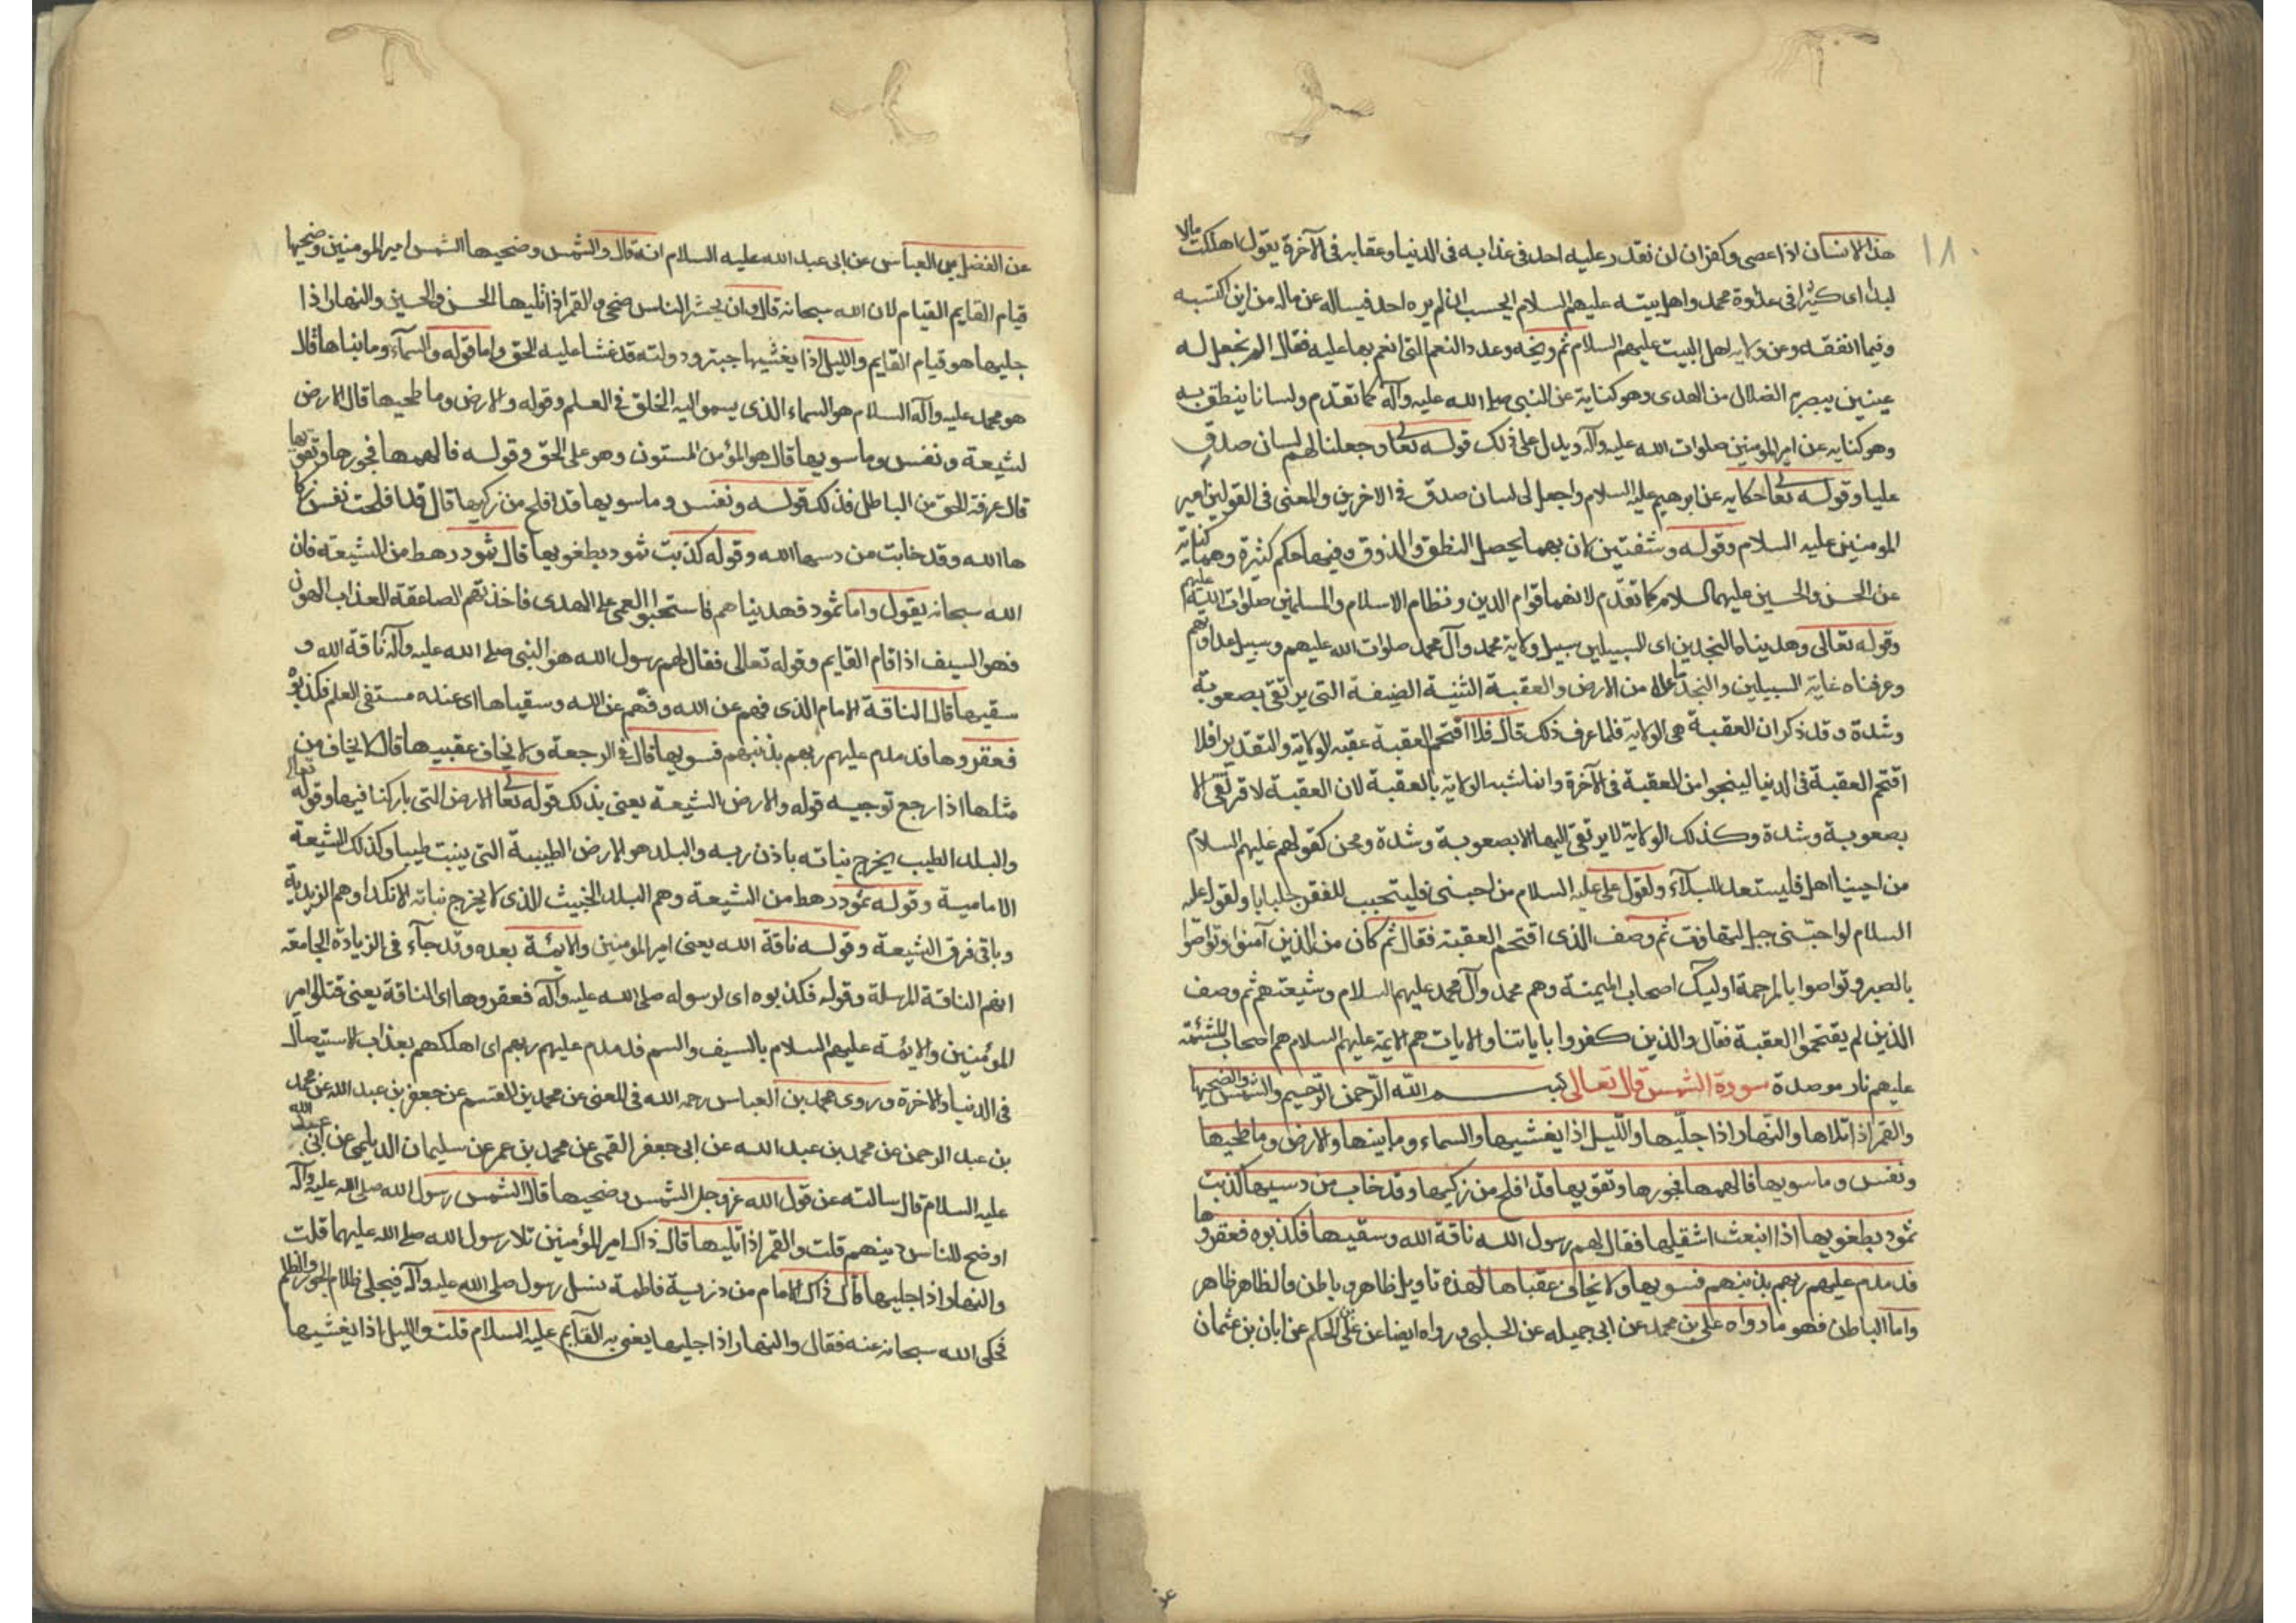 ١٨٠
هذا الانسان اذا عصى وكفر ان لن نقدر عليه احد في عذابه في الدنيا وعقابه في الآخرة يقول اهلكت مالا
لبدا اى كثيرا فى عداوة محمد واهل بيته عليهم السلام ايحسب ان لم يره احد فيساله عن ماله من اين اكتسبه
وفيما انفقه وعن ولايه اهل البيت عليهم السلام ثم وبخه وعدد النعم التى انعم بها عليه فقال الم نجعل له
عينين يبصر بهم الضلال من الهدى وهو كناية عن النبى صلى الله عليه وآله كما تقدم ولسانا ينطق به
وهو كنايه عن امير المؤمنين صلوات الله عليه وآله ويدل على ذلك قوله تعالى وجعلنا لهم لسان صدق
عليا وقوله تعالى حكايه عن ابرهيم عليه السلام واجعل لى لسان صدق فى الاخرين والمعنى فى القولين امير
المومنين عليه السلام وقوله وشفتين لان بهما يحصل النطق والذوق وفيهما حكم كثيرة وهما كناية
عن الحسن والحسين عليهما السلام كما تقدم لانهما قوام الدين ونظام الاسلام والمسلمين صلوات الله عليهم
وقوله تعالى وهديناه النجدين اى السبيلين سبيل ولاية محمد وآل محمد صلوات الله عليهم وسبيل عداوتهم
وعرفناه غاية السبيلين والنجد ما علا من الارض والعقبة الثنية الضيقة التى يرتقى بصعوبة
وشدة وقد ذكر ان العقبة هى الولاية فلما عرف ذلك قال فلا اقتحم العقبة عقبه الولاية والتقدير افلا
اقتحم العقبة فى الدنيا لينجوا من العقبة فى الآخرة وانما شبه الولاية بالعقبة لان العقبة لا ترتقى الا
بصعوبة وشدة وكذلك الولاية لا يرتقى اليها الا بصعوبة وشدة ومحن كقولهم عليهم السلام
من احبنا اهل فليستعد للبلآء ولقول على عليه السلام من احبنى فليتجبب للفقر جلبابا ولقوله عليه
السلام لو احبّنى جبل لتهافت ثم وصف الذى اقتحم العقبة فقال ثم كان من الذين آمنوا وتواصوا
بالصبر وتواصوا بالمرحمة اوليك اصحاب الميمنة وهم محمد وآل محمد عليهم السلام وشيعتهم ثم وصف
الذين لم يقتحموا العقبة فقال والذين كفروا باياتنا والايات هم الايمة عليهم السلام هم اصحاب المشئمة
عليهم نار موصدة سورة الشمس قال تعالى بسم الله الرّحمن الرّحيم والشمس والضحيها
والقمر اذا تلاها والنهار اذا جلّيها واللّيل اذا يغشيها والسماء وما بينها والارض وما طحيها
ونفس وما سويها فالهمها فجورها وتقويها قد افلح من زكيها وقد خاب من دسيها كذبت
ثمود بطغويها اذا انبعث اشقيها فقال لهم رسول الله ناقة الله وسقيها فكذبوه فعقروها
فدمدم عليهم ربهم بذنبهم فسويها ولا يخاف عقباها لهذه تاويل ظاهر وباطن والظاهر ظاهر
واما الباطن فهو ما رواه على بن محمد عن ابى جميله عن الحلبى ورواه ايضا عن على بن الحكم عن ابان بن عثمان
عن
عن الفضل بن العباس عن ابى عبد الله عليه السلام انه قال والشمس وضحيها الشمس امير المومنين وضحيها
قيام القايم القيام لان الله سبحانه قال وان يحشر الناس ضحى والقمر اذا تليها الحسن والحسين والنهار اذا
جليها هو قيام القايم والليل اذا يغشيها حبتر ودولته قد غشا عليه الحق واما قوله والسمآء وما بناها قال
هو محمد عليه وآله السلام هو السماء الذى يسمو اليه الخلق فى العلم وقوله والارض وما طحيها قال الارض
لشيعة ونفس وما سويها قال هو المؤمن المستون وهو على الحق وقوله فالهمها فجورها وتقويها
قال عرفة الحق من الباطل فذلك قوله ونفس وما سويها قد افلح من زكيها قال قد افلحت نفس زكا
ها الله وقد خابت من دسها الله وقوله كذبت ثمود بطغويها قال ثمود رهط من الشيعة فان
الله سبحانه يقول واما ثمود فهديناهم فاستحبوا العمى على الهدى فاخذتهم الصاعقة العذاب الهون
فهو السيف اذا قام القايم وقوله تعالى فقال لهم رسول الله هو النبى صلى الله عليه وآله ناقة الله و
سقيها قال الناقة الامام الذى فهم عن الله وفهّم عن الله وسقياها اى عنده مستقى العلم فكذبوه
فعقروها فدمدم عليهم ربهم بذنبهم فسويها قال فى الرجعة ولا يخاف عقبيها قال لا يخاف من
مثلها اذا رجع توجيه قوله والارض الشيعة يعنى بذلك قوله تعالى الارض التى باركنا فيها وقوله تعالى
والبلد الطيب يخرج نباته باذن ربه والبلد هو الارض الطيبة التى ينبت طيبا وكذلك الشيعة
الامامية وقوله ثمود رهط من الشيعة وهم البلد الخبيث الذى لا يخرج نباته الا نكدا وهم الزيدية
وباقى فرق الشيعة وقوله ناقة الله يعنى امير المومنين والايمّة بعده وقد جآء فى الزيادة الجامعة
انهم الناقة المرسلة وقوله فكذبوه اى لرسوله صلى الله عليه وآله فعقروها اى الناقة يعنى قتلوا امير
المؤمنين والايمّة عليهم السلام بالسيف والسم فدمدم عليهم ربهم اى اهلكهم بعذاب الاستيصال
فى الدنيا والاخرة وروى محمد بن العباس رحمه الله فى المعنى عن محمد بن القسم عن جعفر بن عبد الله عن محمد
بن عبد الرحمن عن محمد بن عبد الله عن ابى جعفر القمى عن محمد بن عمر عن سليمان الديلمى عن ابى عبد الله
عليه السلام قال سالته عن قول الله عز وجل الشمس وضحيها قال الشمس رسول الله صلى الله عليه وآله
اوضح للناس دينهم قلت والقمر اذا تليها قال ذاك امير المؤمنين تلا رسول الله صلى الله عليهما قلت
والنهار اذا جليها قال ذاك الامام من ذرية فاطمة نسل رسول صلى الله عليه وآله فيجلى ظلام الجور والظلم
فحكى الله سبحانه عنه فقال والنهار اذا جليها يعنى به القايم عليه السلام قلت والليل اذا يغشيها